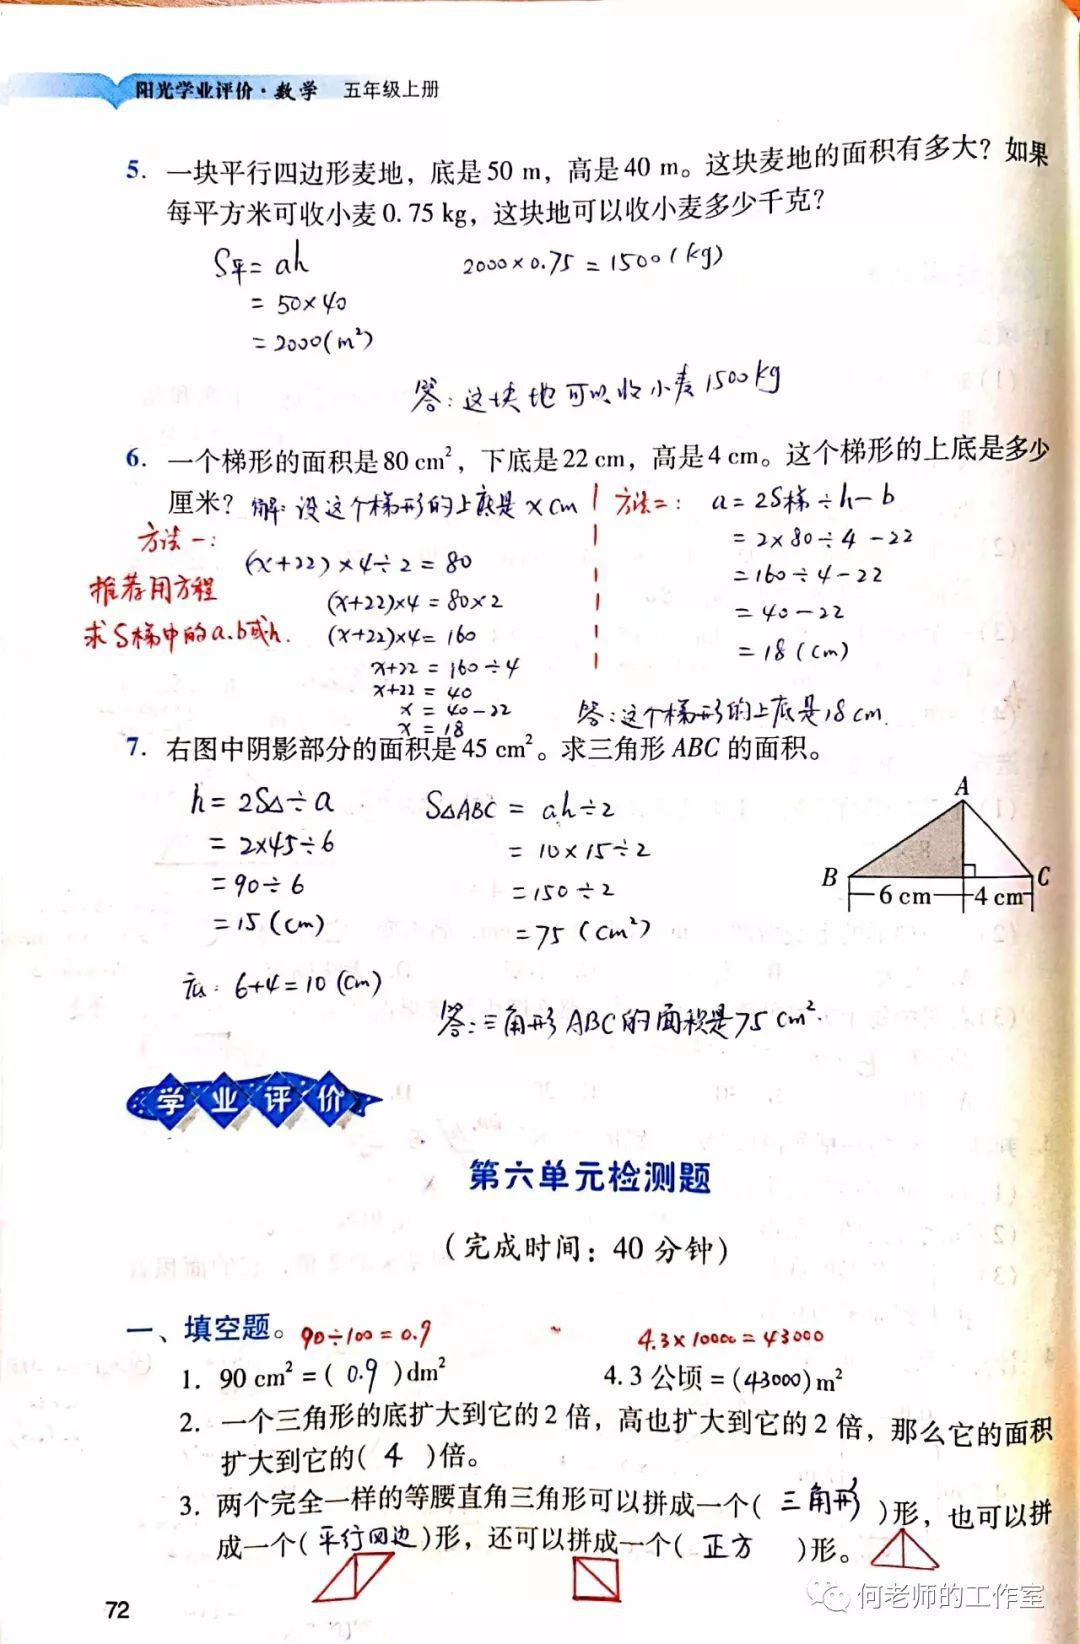 阳光学业评价·数学 五年级上册
5. 一块平行四边形麦地，底是50 m，高是40 m。这块麦地的面积有多大？如果
每平方米可收小麦0.75 kg，这块地可以收小麦多少千克？
S平= ah 2000×0.75 = 1500(kg)
= 50×40
= 2000(m²)
答：这块地可以收小麦1500kg
6. 一个梯形的面积是80 cm²，下底是22 cm，高是4 cm。这个梯形的上底是多少
厘米？ 解：设这个梯形的上底是xcm 方法二： a = 2S梯÷h-b
方法一： (x+22)×4÷2=80 = 2×80÷4-22
推荐用方程 (x+22)×4=80×2 =160÷4-22
求S梯中的a.b或h. (x+22)×4=160 = 40-22
x+22 = 160÷4 = 18(cm)
x+22 = 40
x = 40-22 答：这个梯形的上底是18cm.
x = 18
7. 右图中阴影部分的面积是45 cm²。求三角形ABC的面积。
h= 2S△÷a S△ABC = ah÷2
= 2×45÷6 = 10×15÷2
=90÷6 =150÷2
=15(cm) =75(cm²)
底：6+4=10(cm)
答：三角形ABC的面积是75cm².
A
B C
6 cm 4 cm
学业评价
第六单元检测题
（完成时间：40分钟）
一、填空题。 90÷100=0.9 4.3×10000=43000
1. 90 cm²=( 0.9 )dm² 4.3公顷=(43000)m²
2. 一个三角形的底扩大到它的2倍，高也扩大到它的2倍，那么它的面积
扩大到它的( 4 )倍。
3. 两个完全一样的等腰直角三角形可以拼成一个( 三角形 )形，也可以拼
成一个(平行四边)形，还可以拼成一个( 正方 )形。
72
何老师的工作室